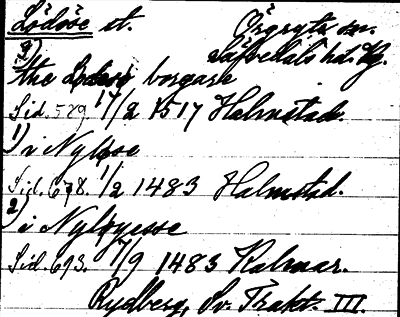 Lödöse st. Örgryte sn.
3) Sävedals hd. Vg.
the Lodese borgare
Sid. 589. 17/2 1517 Halmstad.
1) i Nyløse
Sid. 678. 1/2 1483 Halmstad.
2) i Nyløsesse
Sid. 693. 7/9 1483 Kalmar.
Rydberg, Sv. Trakt. III.